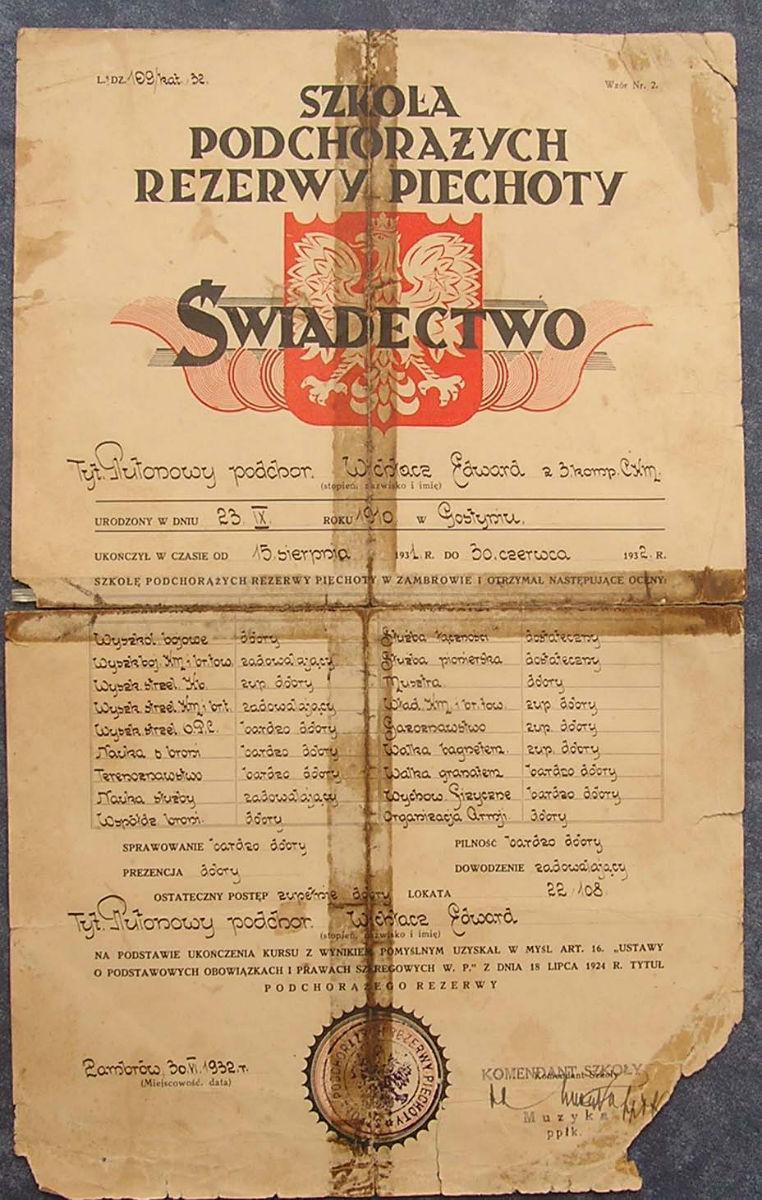 L. DZ. 109/kat. 32. Wzór Nr. 2.
SZKOŁA
PODCHORĄŻYCH
REZERWY PIECHOTY
ŚWIADECTWO
Tyt. Plutonowy podchor. Wichłacz Edward z 3. komp. C.K.M.
(stopień, nazwisko i imię)
URODZONY W DNIU 23. IX. ROKU 1910. W Gostyniu.
UKOŃCZYŁ W CZASIE OD 15. sierpnia 1931. R. DO 30. czerwca 1932. R.
SZKOŁĘ PODCHORĄŻYCH REZERWY PIECHOTY W ZAMBROWIE I OTRZYMAŁ NASTĘPUJĄCE OCENY:
Wyszkol. bojowe dobry Służba łączności dostateczny
Wyszk. boj. KM. i br. tow. zadowalający Służba pionierska dostateczny
Wyszk. strzel. Kb. zup. dobry Musztra dobry
Wyszk. strzel. KM. i br. t. zadowalający Wład. KM. i br. tow. zup. dobry
Wyszk. strzel. O.P.L. bardzo dobry Gazoznawstwo zup. dobry
Nauka o broni bardzo dobry Walka bagnetem. zup. dobry
Terenoznawstwo bardzo dobry Walka granatem bardzo dobry
Nauka służby zadowalający Wychow. Fizyczne bardzo dobry
Współdz. broni. dobry Organizacja Armji dobry
SPRAWOWANIE bardzo dobry PILNOŚĆ bardzo dobry
PREZENCJA dobry DOWODZENIE zadowalający
OSTATECZNY POSTĘP zupełnie dobry LOKATA 22/108
Tyt. Plutonowy podchor. Wichłacz Edward
(stopień, nazwisko i imię)
NA PODSTAWIE UKOŃCZENIA KURSU Z WYNIKIEM POMYŚLNYM UZYSKAŁ W MYŚL ART. 16. „USTAWY
O PODSTAWOWYCH OBOWIĄZKACH I PRAWACH SZEREGOWYCH W. P." Z DNIA 18 LIPCA 1924 R. TYTUŁ
PODCHORĄŻEGO REZERWY
Zambrów, 30. VI. 1932. r.
(Miejscowość, data)
PODCHORĄŻYCH REZERWY PIECHOTY
KOMENDANT SZKOŁY
Komendant Szkoły
Muzyka
ppłk.